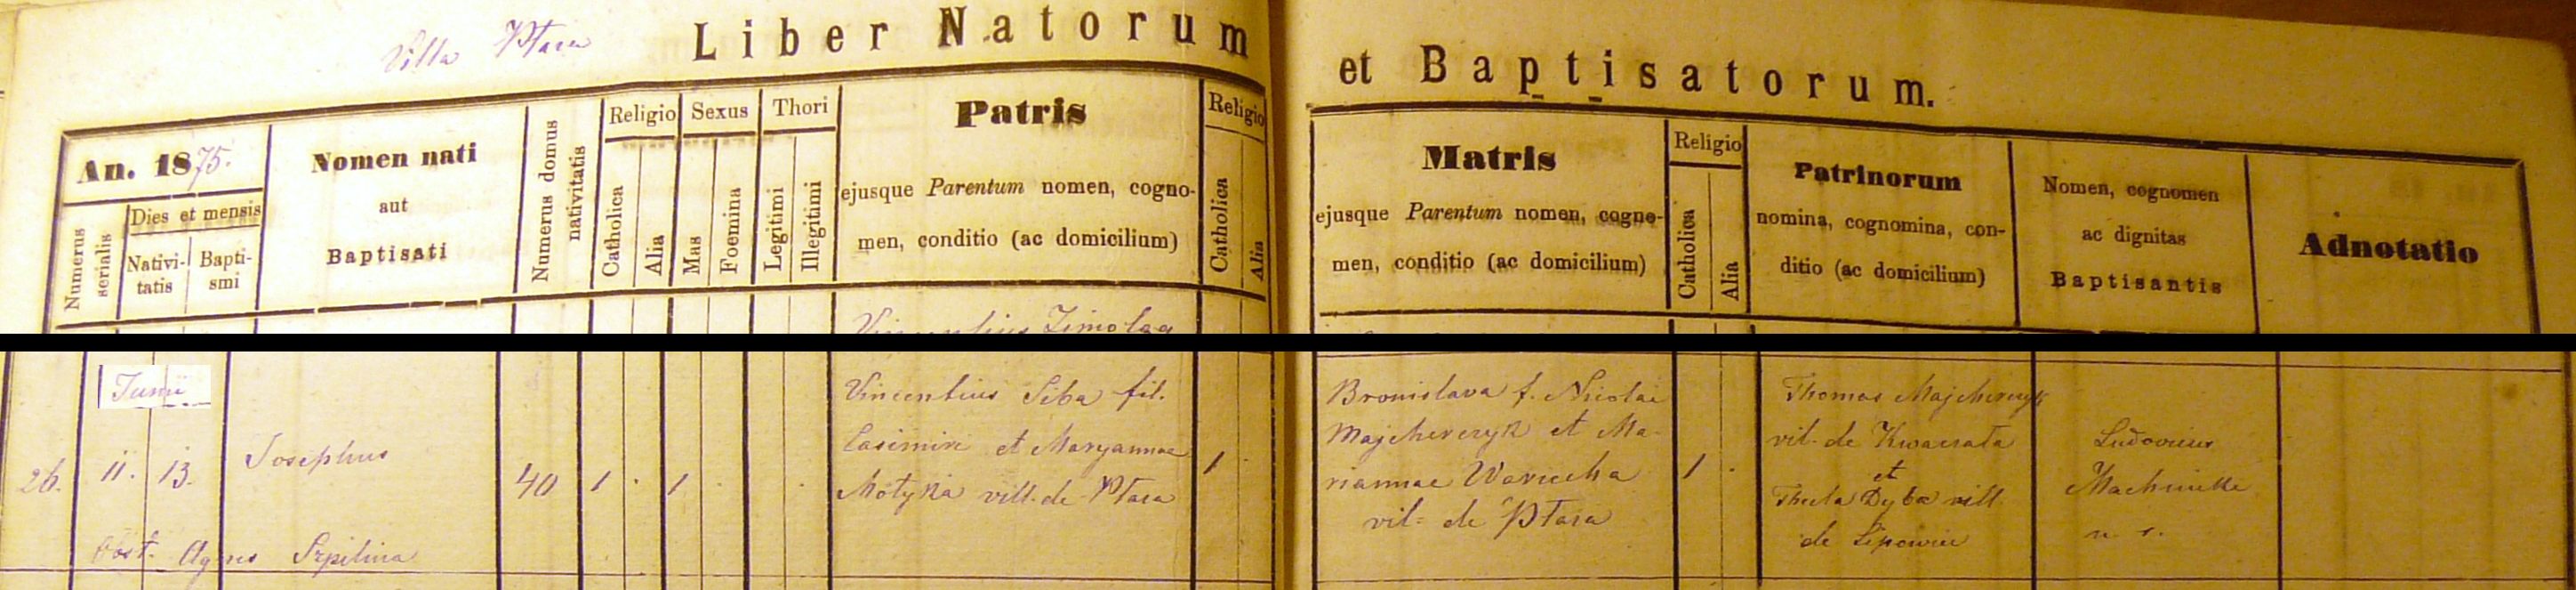 Villa Płaza
Liber Natorum
et Baptisatorum.
An. 1875.
Numerus serialis
Dies et mensis
Nativi-
tatis
Bapti-
smi
Nomen nati
aut
Baptisati
Numerus domus
nativitatis
Religio
Catholica
Alia
Sexus
Mas
Foemina
Thori
Legitimi
Illegitimi
Patris
ejusque Parentum nomen, cogno-
men, conditio (ac domicilium)
Religio
Catholica
Alia
Matris
ejusque Parentum nomen, cogno-
men, conditio (ac domicilium)
Religio
Catholica
Alia
Patrinorum
nomina, cognomina, con-
ditio (ac domicilium)
Nomen, cognomen
ac dignitas
Baptisantis
Adnotatio
Vincentius
Junii
26. 11. 13. Josephus 40 1 1
Obst. Agnes
Vincentius Siba fil.
Casimiri et Maryannae
Motyka vill. de Płaza
1
Bronislava f. Nicolai
Majcherczyk et Ma-
riannae Warzecha
vil= de Płaza
1
Thomas Majcherczyk
vil. de Kwaczała
et
Thecla Dyba vill
de Lipowiec
Ludovicus